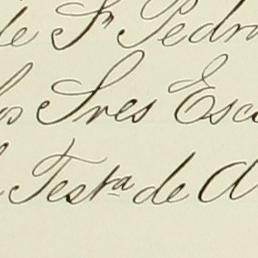 de Sr Pedro
los Sres Esc
Testa de A